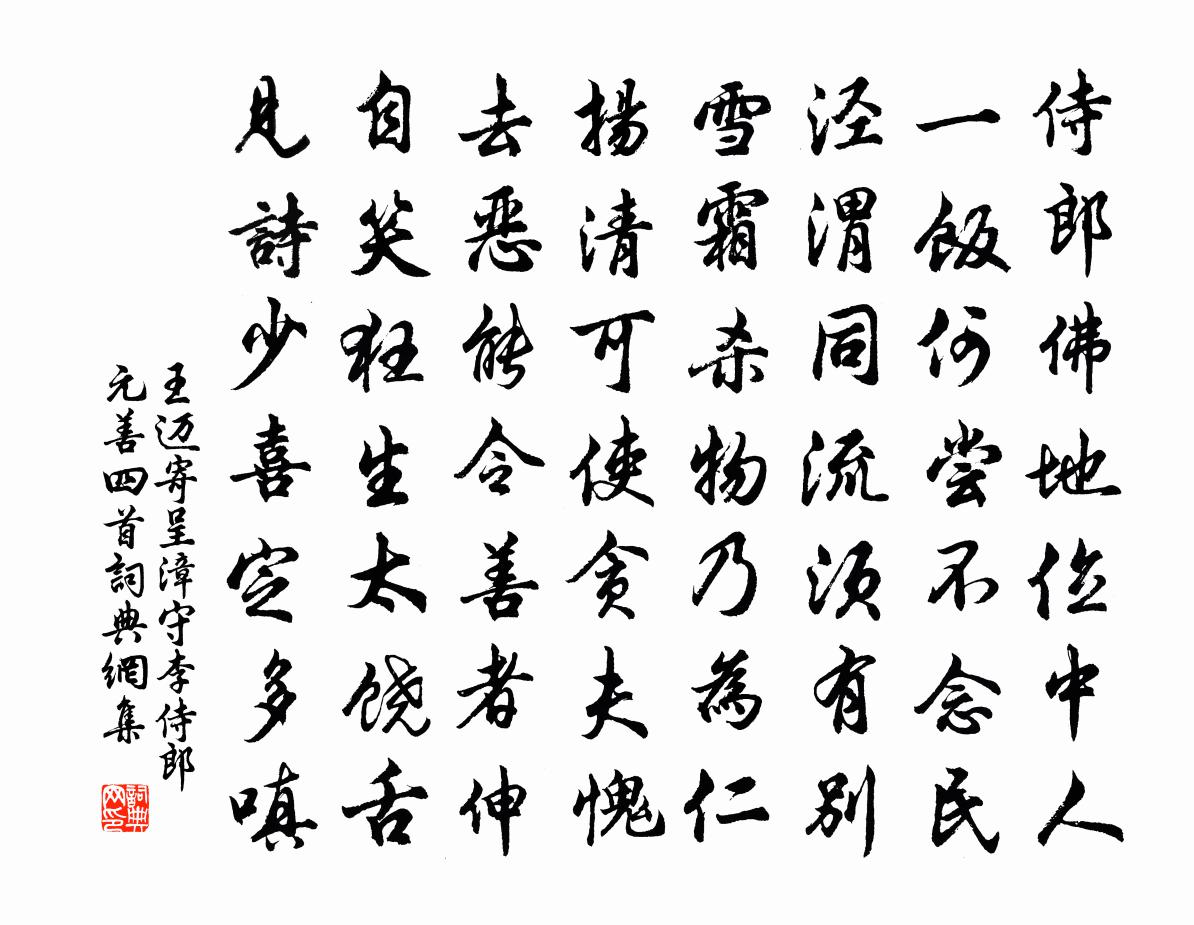 侍郎佛地位中人
一飯何尝不念民
泾渭同流須有别
雪霜杀物乃為仁
揚清可使贪夫愧
去恶能令善者伸
自笑狂生太饶舌
見詩少喜定多嗔
王迈寄呈漳守李侍郎
元善四首詞典網集
詞典
网印